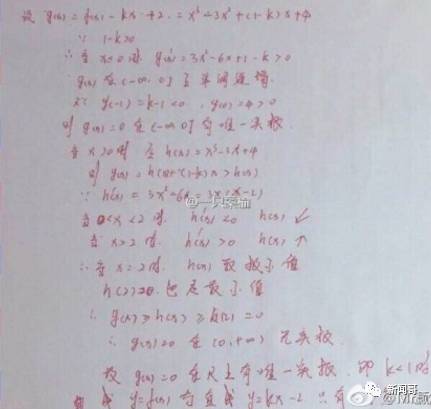 设 g(x)=f(x)-kx+2=x³-3x²+(1-k)x+4
∵ 1-k>0
∴ 当 x≤0时 g'(x)=3x²-6x+1-k>0
g(x) 在 (-∞,0] 上单调递增
又∵ g(-1)=k-1<0 , g(0)=4>0
则 g(x)=0 在 (-∞,0] 有唯一实根
当 x>0时 令 h(x)=x³-3x²+4
则 g(x)=h(x)+(1-k)x>h(x)
∵ h'(x)=3x²-6x=3x(x-2)
@一只柴输
当 0<x<2时. h'(x)<0 h(x) ↙
当 x>2时. h'(x)>0 h(x) ↗
∴ 当 x=2时. h(x) 取极小值
h(2)=0. 也是最小值
∴ g(x)>h(x)≥h(2)=0
∴ g(x)=0 在 (0,+∞) 无实根
故 g(x)=0 在R上有唯一实根. 即 k<1时
y=f(x) 与直线 y=kx-2 只有
新闻哥